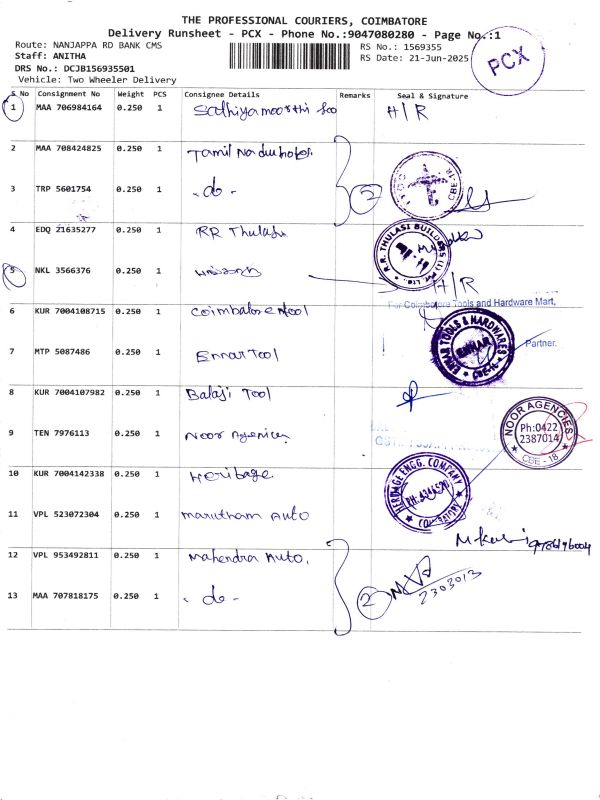 THE PROFESSIONAL COURIERS, COIMBATORE
Delivery Runsheet - PCX - Phone No.:9047080280 - Page No.:1
Route: NANJAPPA RD BANK CMS
RS No.: 1569355
Staff: ANITHA
RS Date: 21-Jun-2025
PCX
DRS No.: DCJB156935501
Vehicle: Two Wheeler Delivery
S No Consignment No Weight PCS Consignee Details Remarks Seal & Signature
1 MAA 706984164 0.250 1 H/R
2 MAA 708424825 0.250 1
3 TRP 5601754 0.250 1 - do - 2 CBE-18
4 EDQ 21635277 0.250 1 RR Thulasi
R.R. THULASI BUILDERS (I) Pvt Ltd.,
5 NKL 3566376 0.250 1 H/R
For Coimbatore Tools and Hardware Mart,
6 KUR 7004108715 0.250 1 Coimbatore Tool
Partner.
7 MTP 5087486 0.250 1 Ennar Tool
ENNAR TOOLS & HARDWARES
ENNAR
8 KUR 7004107982 0.250 1 Balaji Tool
9 TEN 7976113 0.250 1 Noor Agencies
NOOR AGENCIES
Ph:0422
2387014
CBE - 18
10 KUR 7004142338 0.250 1 Heritage
HERITAGE ENGG. COMPANY
11 VPL 523072304 0.250 1 Marutham Auto
12 VPL 953492811 0.250 1 Mahendra Auto.
13 MAA 707818175 0.250 1 - do - 2 2303013